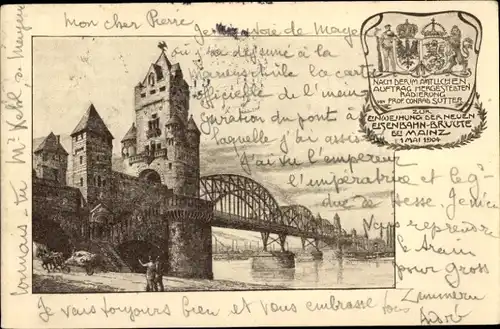 mon cher Pierre
Je t'envoie de Mayence
où j'ai déjeuné à la
la carte
officielle de l'inau
guration du pont à
laquelle j'ai assisté
J'ai vu l'empereur
l'impératrice et le g
duc de Hesse. Je
Vais reprendre
le train
pour Gross
Zimmern
André
Je vais toujours bien et vous embrasse tous
connais-tu Mr Kehl
NACH DER IM AMTLICHEN
AUFTRAG HERGESTELLTEN
RADIERUNG
VON PROF. CONRAD SUTTER
ZUR
EINWEIHUNG DER NEUEN
EISENBAHN-BRÜCKE
BEI MAINZ
1 MAI 1904